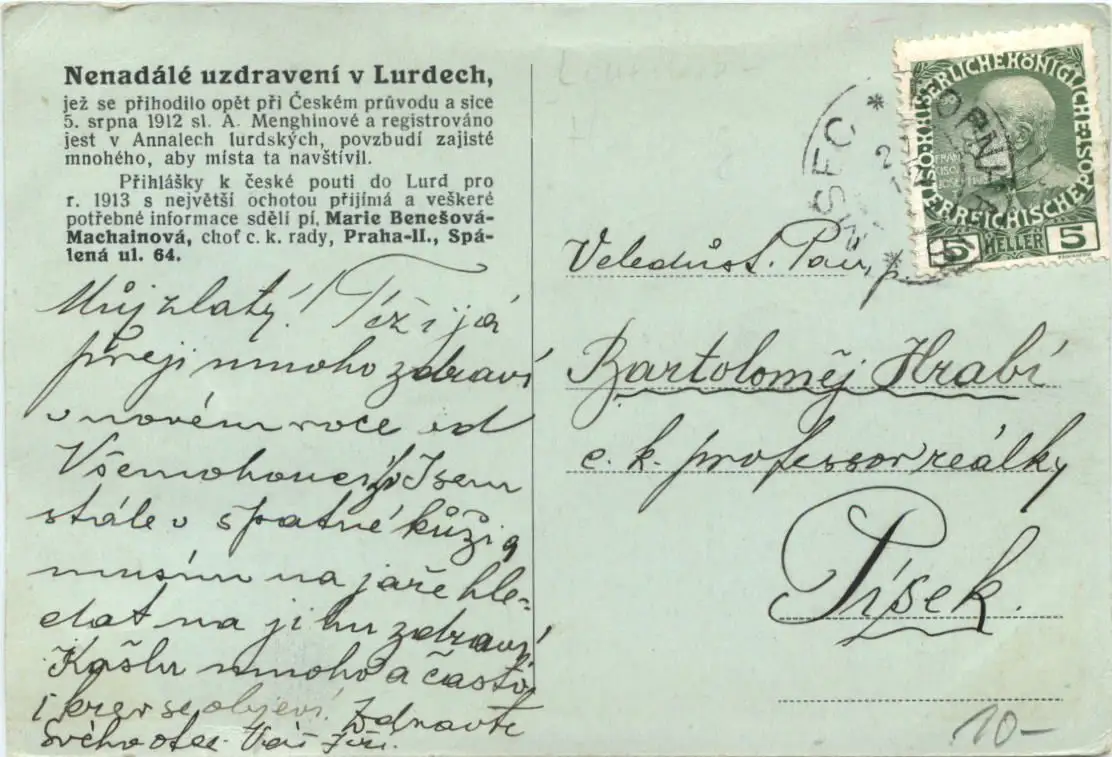 Nenadálé uzdravení v Lurdech,
jež se přihodilo opět při Českém průvodu a sice
5. srpna 1912 sl. A. Menghinové a registrováno
jest v Annalech lurdských, povzbudí zajisté
mnohého, aby místa ta navštívil.
Přihlášky k české pouti do Lurd pro
r. 1913 s největší ochotou přijímá a veškeré
potřebné informace sdělí pí. Marie Benešová-
Machainová, choť c. k. rady, Praha-II., Spá-
lená ul. 64.
Můj zlatý! Též i já
přeji mnoho zdraví
v novém roce od
Všemohoucího Jsem
stále v špatné kůži a
musím na jaře hle-
dat na jihu zdraví
Kašlu mnoho a často
i krev se objeví. Zdravte
Svého otce. Váš Jiří.
KAISERLICHE KÖNIGLICHE
ÖSTERREICHISCHE
5 HELLER 5
Veledůst. Pan, p.
Bartoloměj Hrabí
c. k. professor reálky
Písek.
10-